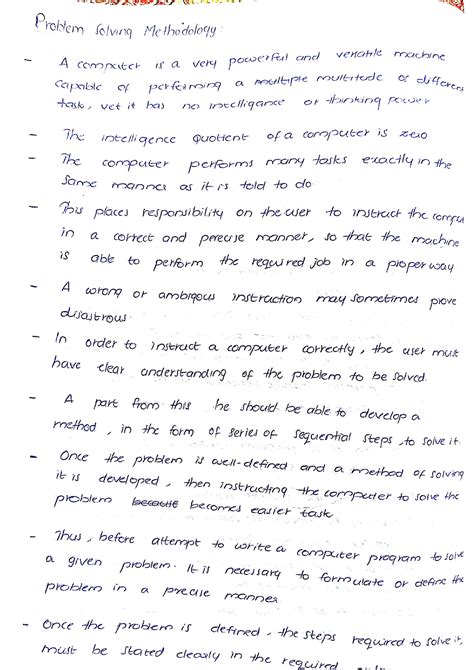 Problem Solving Methodology:
- A computer is a very powerful and versatile machine
capable of performing a multiple multitude of different
task, yet it has no intelligance or thinking power
- The intelligence quotient of a computer is zero
- The computer performs many tasks exactly in the
same manner as it is told to do
- This places responsibility on the user to instruct the comput
in a correct and perecise manner, so that the machine
is able to perform the required job in a proper way
- A wrong or ambigous instruction may sometimes prove
disastrous
- In order to instruct a computer correctly, the user must
have clear understanding of the problem to be solved.
- A part from this he should be able to develop a
method, in the form of series of sequential steps, to solve it.
- Once the problem is well-defined and a method of solving
it is developed, then instructing the computer to solve the
problem because becomes easier task
- Thus, before attempt to write a computer program to solve
a given problem. It is necessary to formulate or define the
problem in a precise manner.
- Once the problem is defined, the steps required to solve it,
must be stated clearly in the required